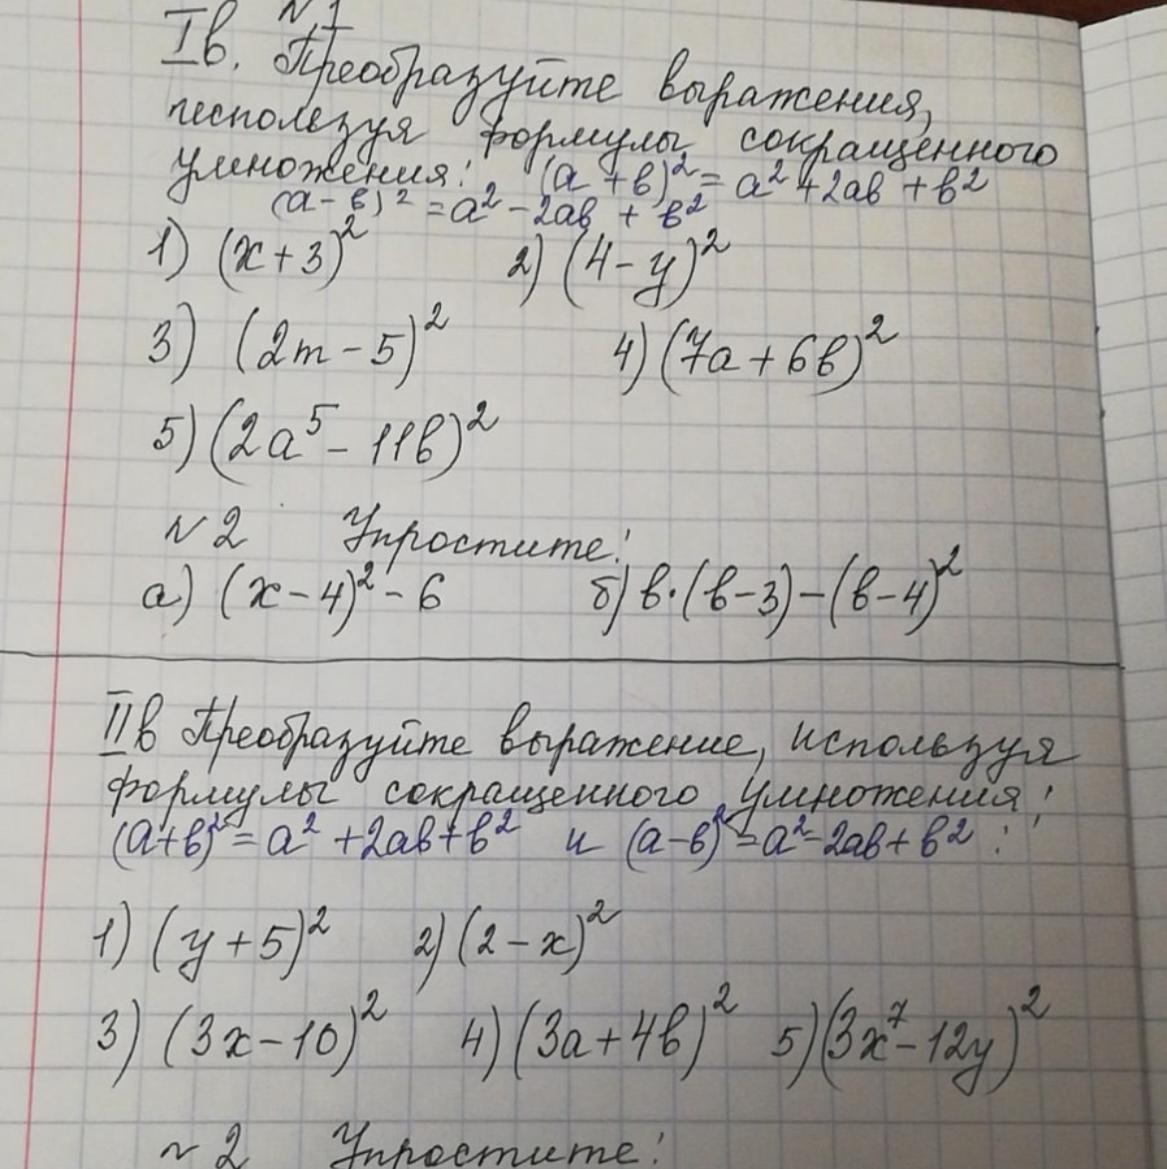 №1
Iв. Преобразуйте выражения,
используя формулы сокращенного
умножения: (а + в)² = а² + 2ав + в²
(а - в)² = а² - 2ав + в²
1) (x + 3)² 2) (4 - y)²
3) (2m - 5)² 4) (7а + 6в)²
5) (2а⁵ - 11в)²
№2 Упростите:
а) (x - 4)² - 6 б) в·(в - 3) - (в - 4)²
IIв Преобразуйте выражение, используя
формулы сокращенного умножения:
(а+в)² = а² + 2ав + в² и (а-в)² = а² - 2ав + в² :
1) (y + 5)² 2) (2 - x)²
3) (3x - 10)² 4) (3а + 4в)² 5) (3x⁷ - 12y)²
№2 Упростите: